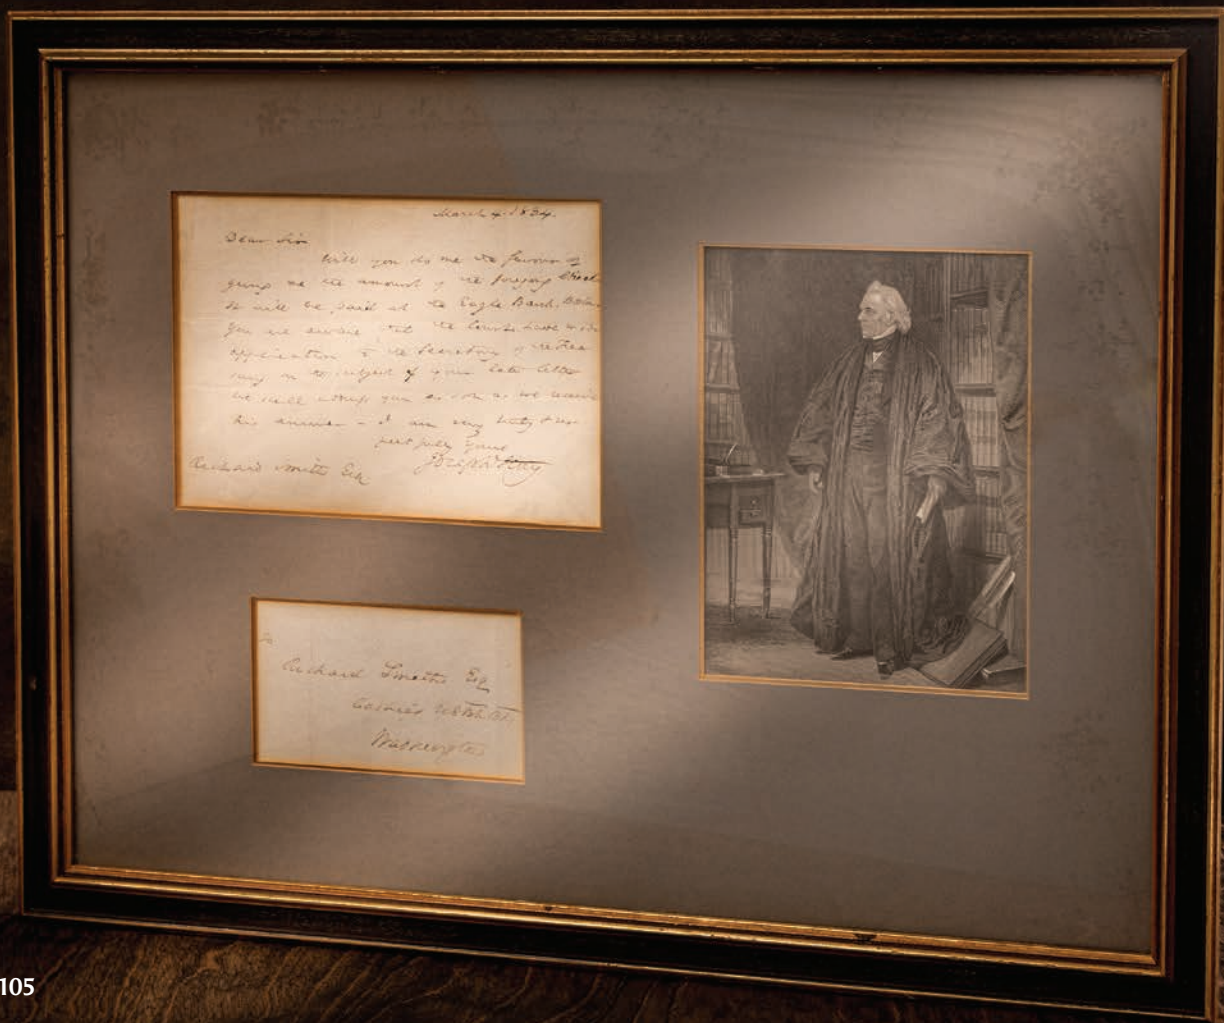 March 4. 1834.
Dear Sir
Will you do me the favour of
giving me the amount of the foregoing Check
it will be paid at the Eagle Bank.
You are aware that the Courts have
application to the Secretary of the Trea
sury on the subject of your late letter
We will address you as soon as we receive
his answer - I am very truly & res
pectfully Yours
Joseph Story
Richard Smith Esq
To
Richard Smith Esq
Cashier U S Bk
Washington
105